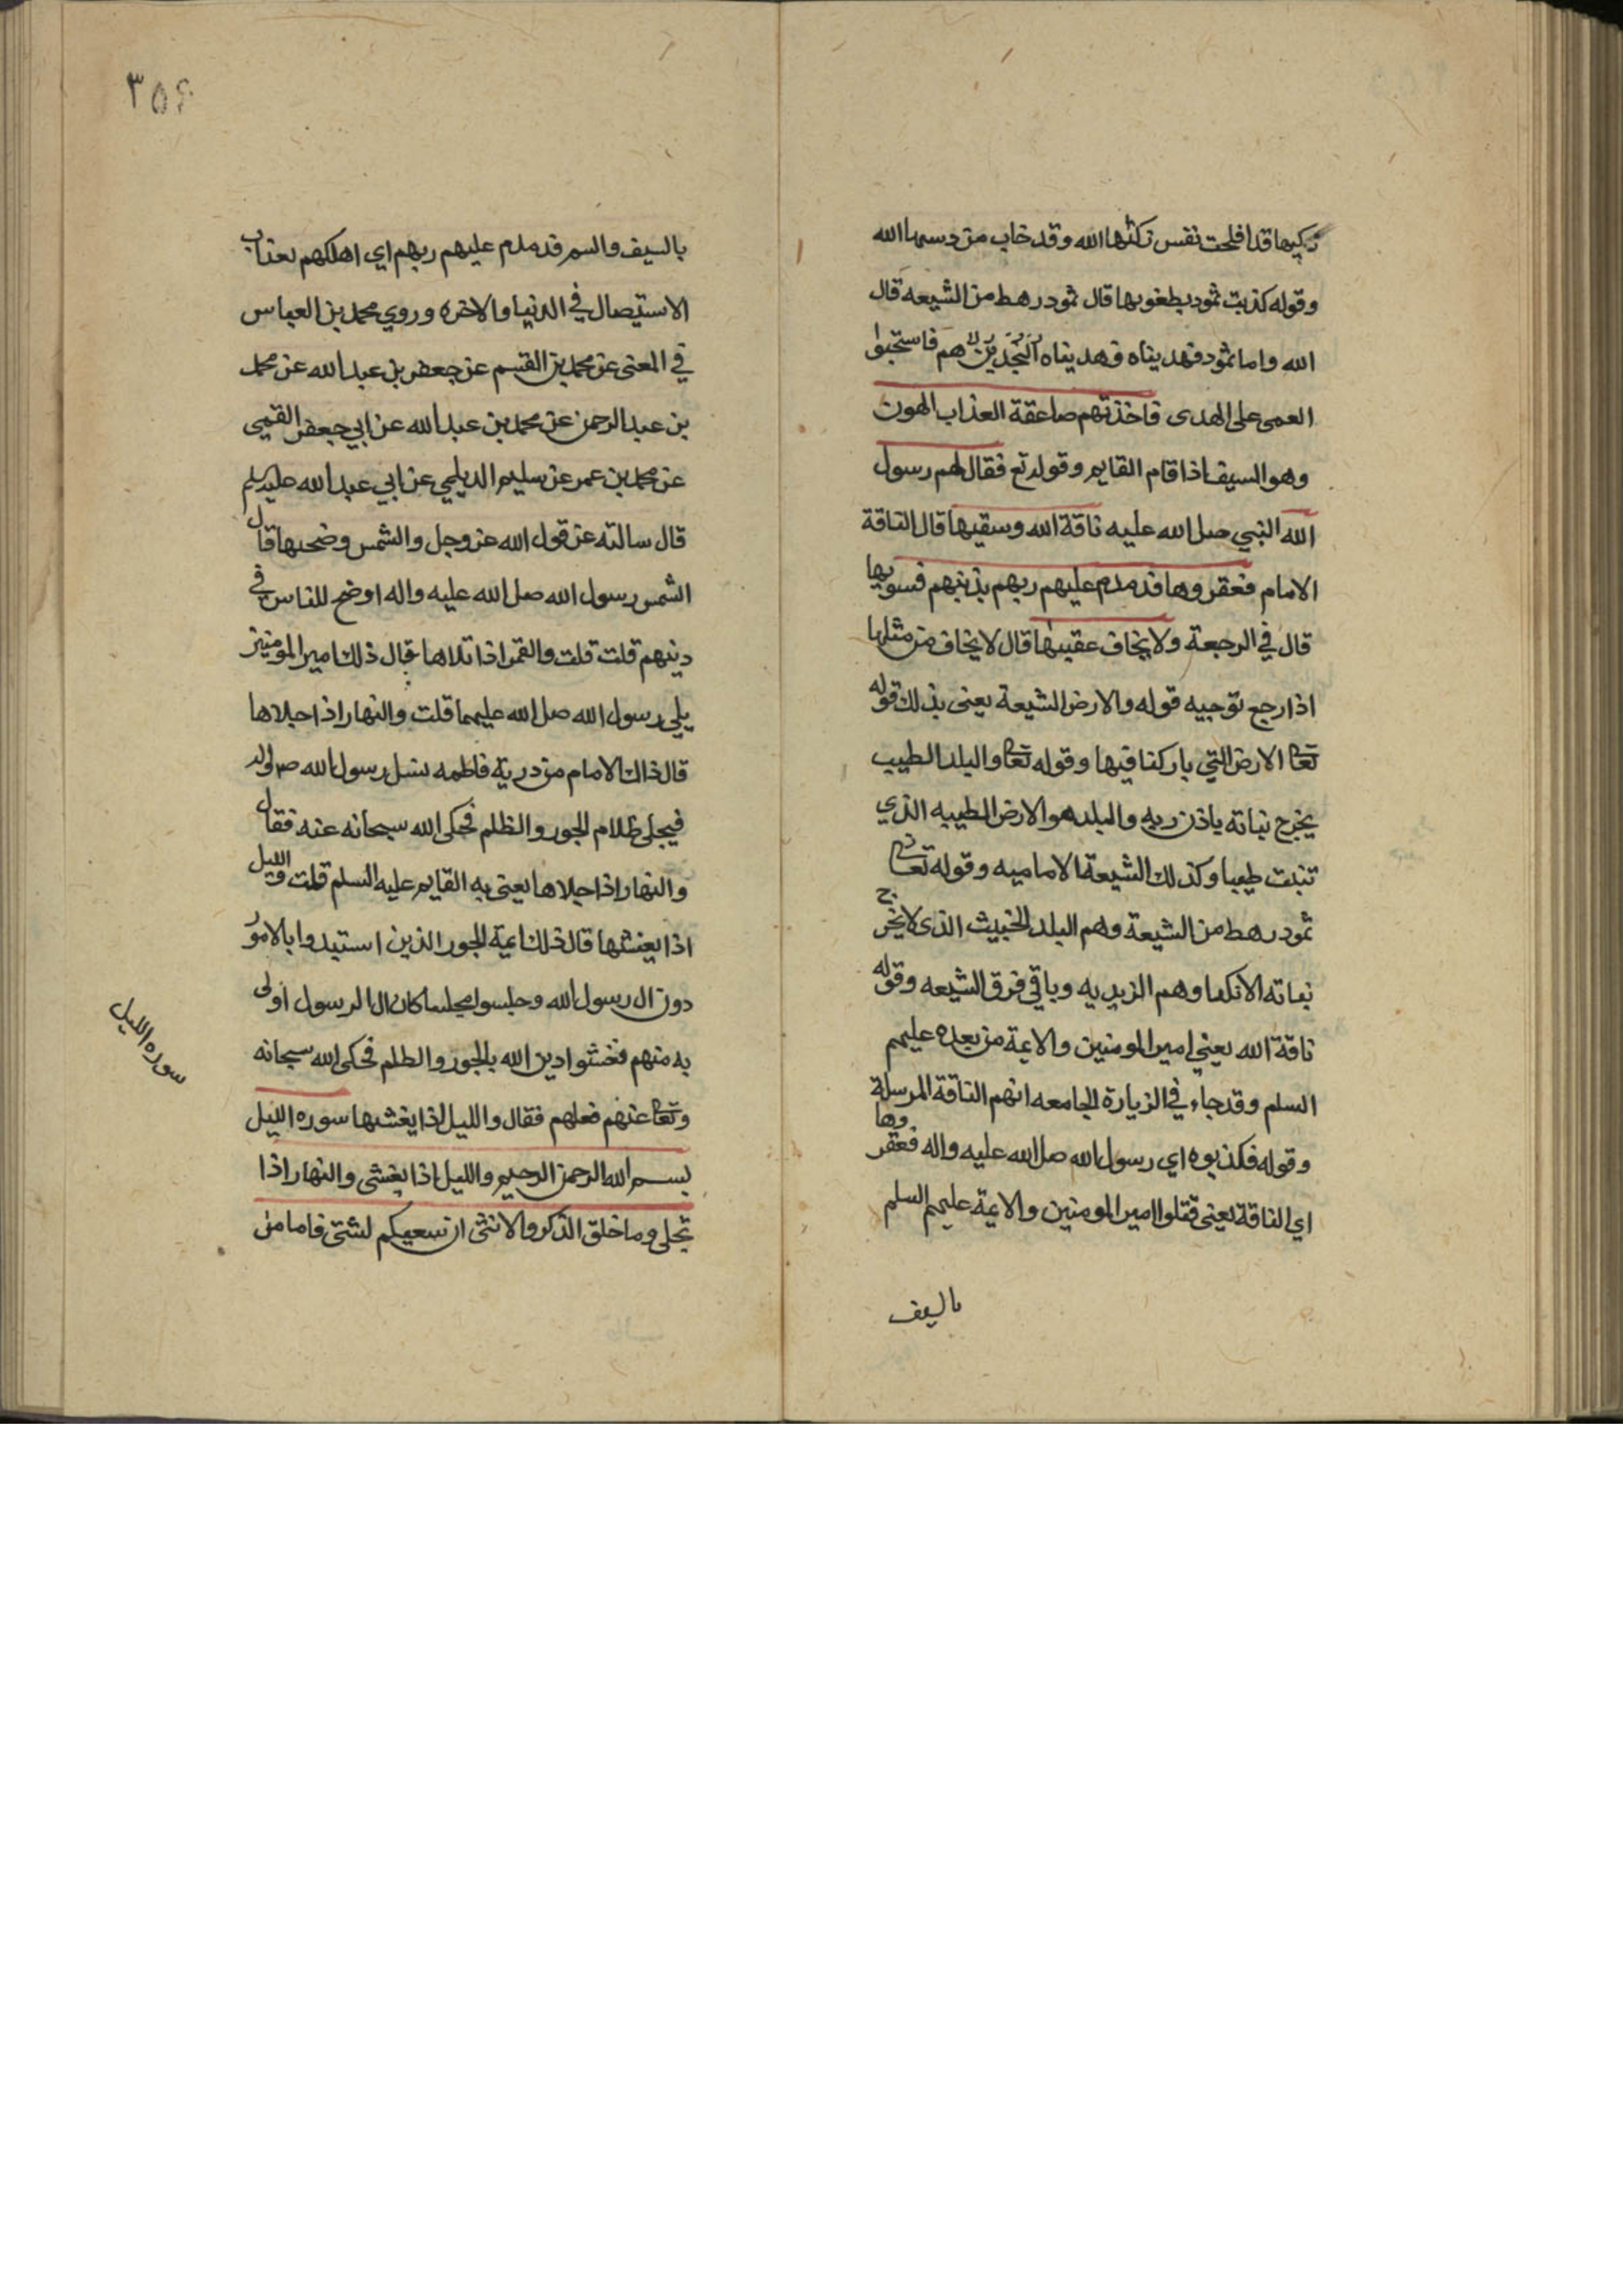 زكيها قد افلحت نفس زكتها الله وقد خاب من دسيها الله
وقوله كذبت ثمود بطغويها قال ثمود رهط من الشيعه قال
الله واما ثمود فهديناه فهديناه النجدين لا هم فاستحبوا
العمى على الهدى فاخذتهم صاعقة العذاب الهون
وهو السيف اذا قام القايم وقوله تع فقال لهم رسول
الله النبي صل الله عليه ناقة الله وسقيها قال الناقة
الامام فعقروها فدمدم عليهم ربهم بذنبهم فسويها
قال في الرجعة ولا يخاف عقبيها قال لا يخاف من مثلها
اذا رجع توجيه قوله والارض الشيعة يعنى بذلك قوله
تعا الارض التي باركنا فيها وقوله تعا والبلد الطيب
يخرج نباته باذن ربه والبلد هو الارض الطيبه الذي
تنبت طيبا وكذلك الشيعة الاماميه وقوله تعا
ثمود رهط من الشيعة وهم البلد الخبيث الذى لا يخرج
نباته الا نكدا وهم الزيديه وباقي فرق الشيعه وقوله
ناقة الله يعني امير المومنين والايمة من بعده عليهم
السلم وقد جاء في الزيارة الجامعه انهم الناقة المرسلة
وقوله فكذبوه اي رسول الله صل الله عليه واله فعقروها
اي الناقة يعنى قتلوا امير المومنين والايمة عليهم السلم
بالسيف
٣٥٤
بالسيف والسم فدمدم عليهم ربهم اي اهلكهم بعذاب
الاستيصال في الدنيا والاخره وروي محمد بن العباس
في المعنى عن محمد بن القسم عن جعفر بن عبد الله عن محمد
بن عبد الرحمن عن محمد بن عبد الله عن ابي جعفر القمي
عن محمد بن عمر عن سليم الديلمي عن ابي عبد الله عليه سلم
قال سالته عن قول الله عز وجل والشمس وضحيها قال
الشمس رسول الله صل الله عليه واله اوضح للناس في
دينهم قلت قلت والقمر اذا تلاها قال ذلك امير المومنين
يلي رسول الله صل الله عليهما قلت والنهار اذا جلاها
قال ذاك الامام من درية فاطمه نسل رسول الله ص واله
فيجلى ظلام الجور والظلم فحكى الله سبحانه عنه فقال
والنهار اذا جلاها يعنى به القايم عليه السلم قلت والليل
اذا يغشها قال ذلك ايمة الجور الذين استبدوا بالامور
دون ال رسول الله وجلسوا مجلسا كان ال الرسول اولى
به منهم فغشوا دين الله بالجور والظلم فحكى الله سبحانه
وتعا عنهم فعلهم فقال والليل اذا يغشها سوره الليل
بسم الله الرحمن الرحيم والليل اذا يغشى والنهار اذا
تجلى وما خلق الذكر والانثى ان سعيكم لشتى فاما من
سوره الليل